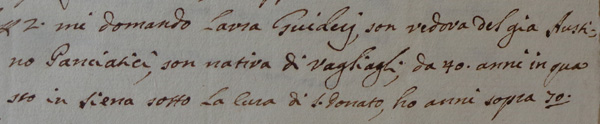 2. mi domando Laura Guideij, son vedova del gia Austi=
no Panciatici, son nativa di Vagliagli, da 40. anni in qua
sto in Siena sotto la Cura di S. Donato, ho anni sopra 70.